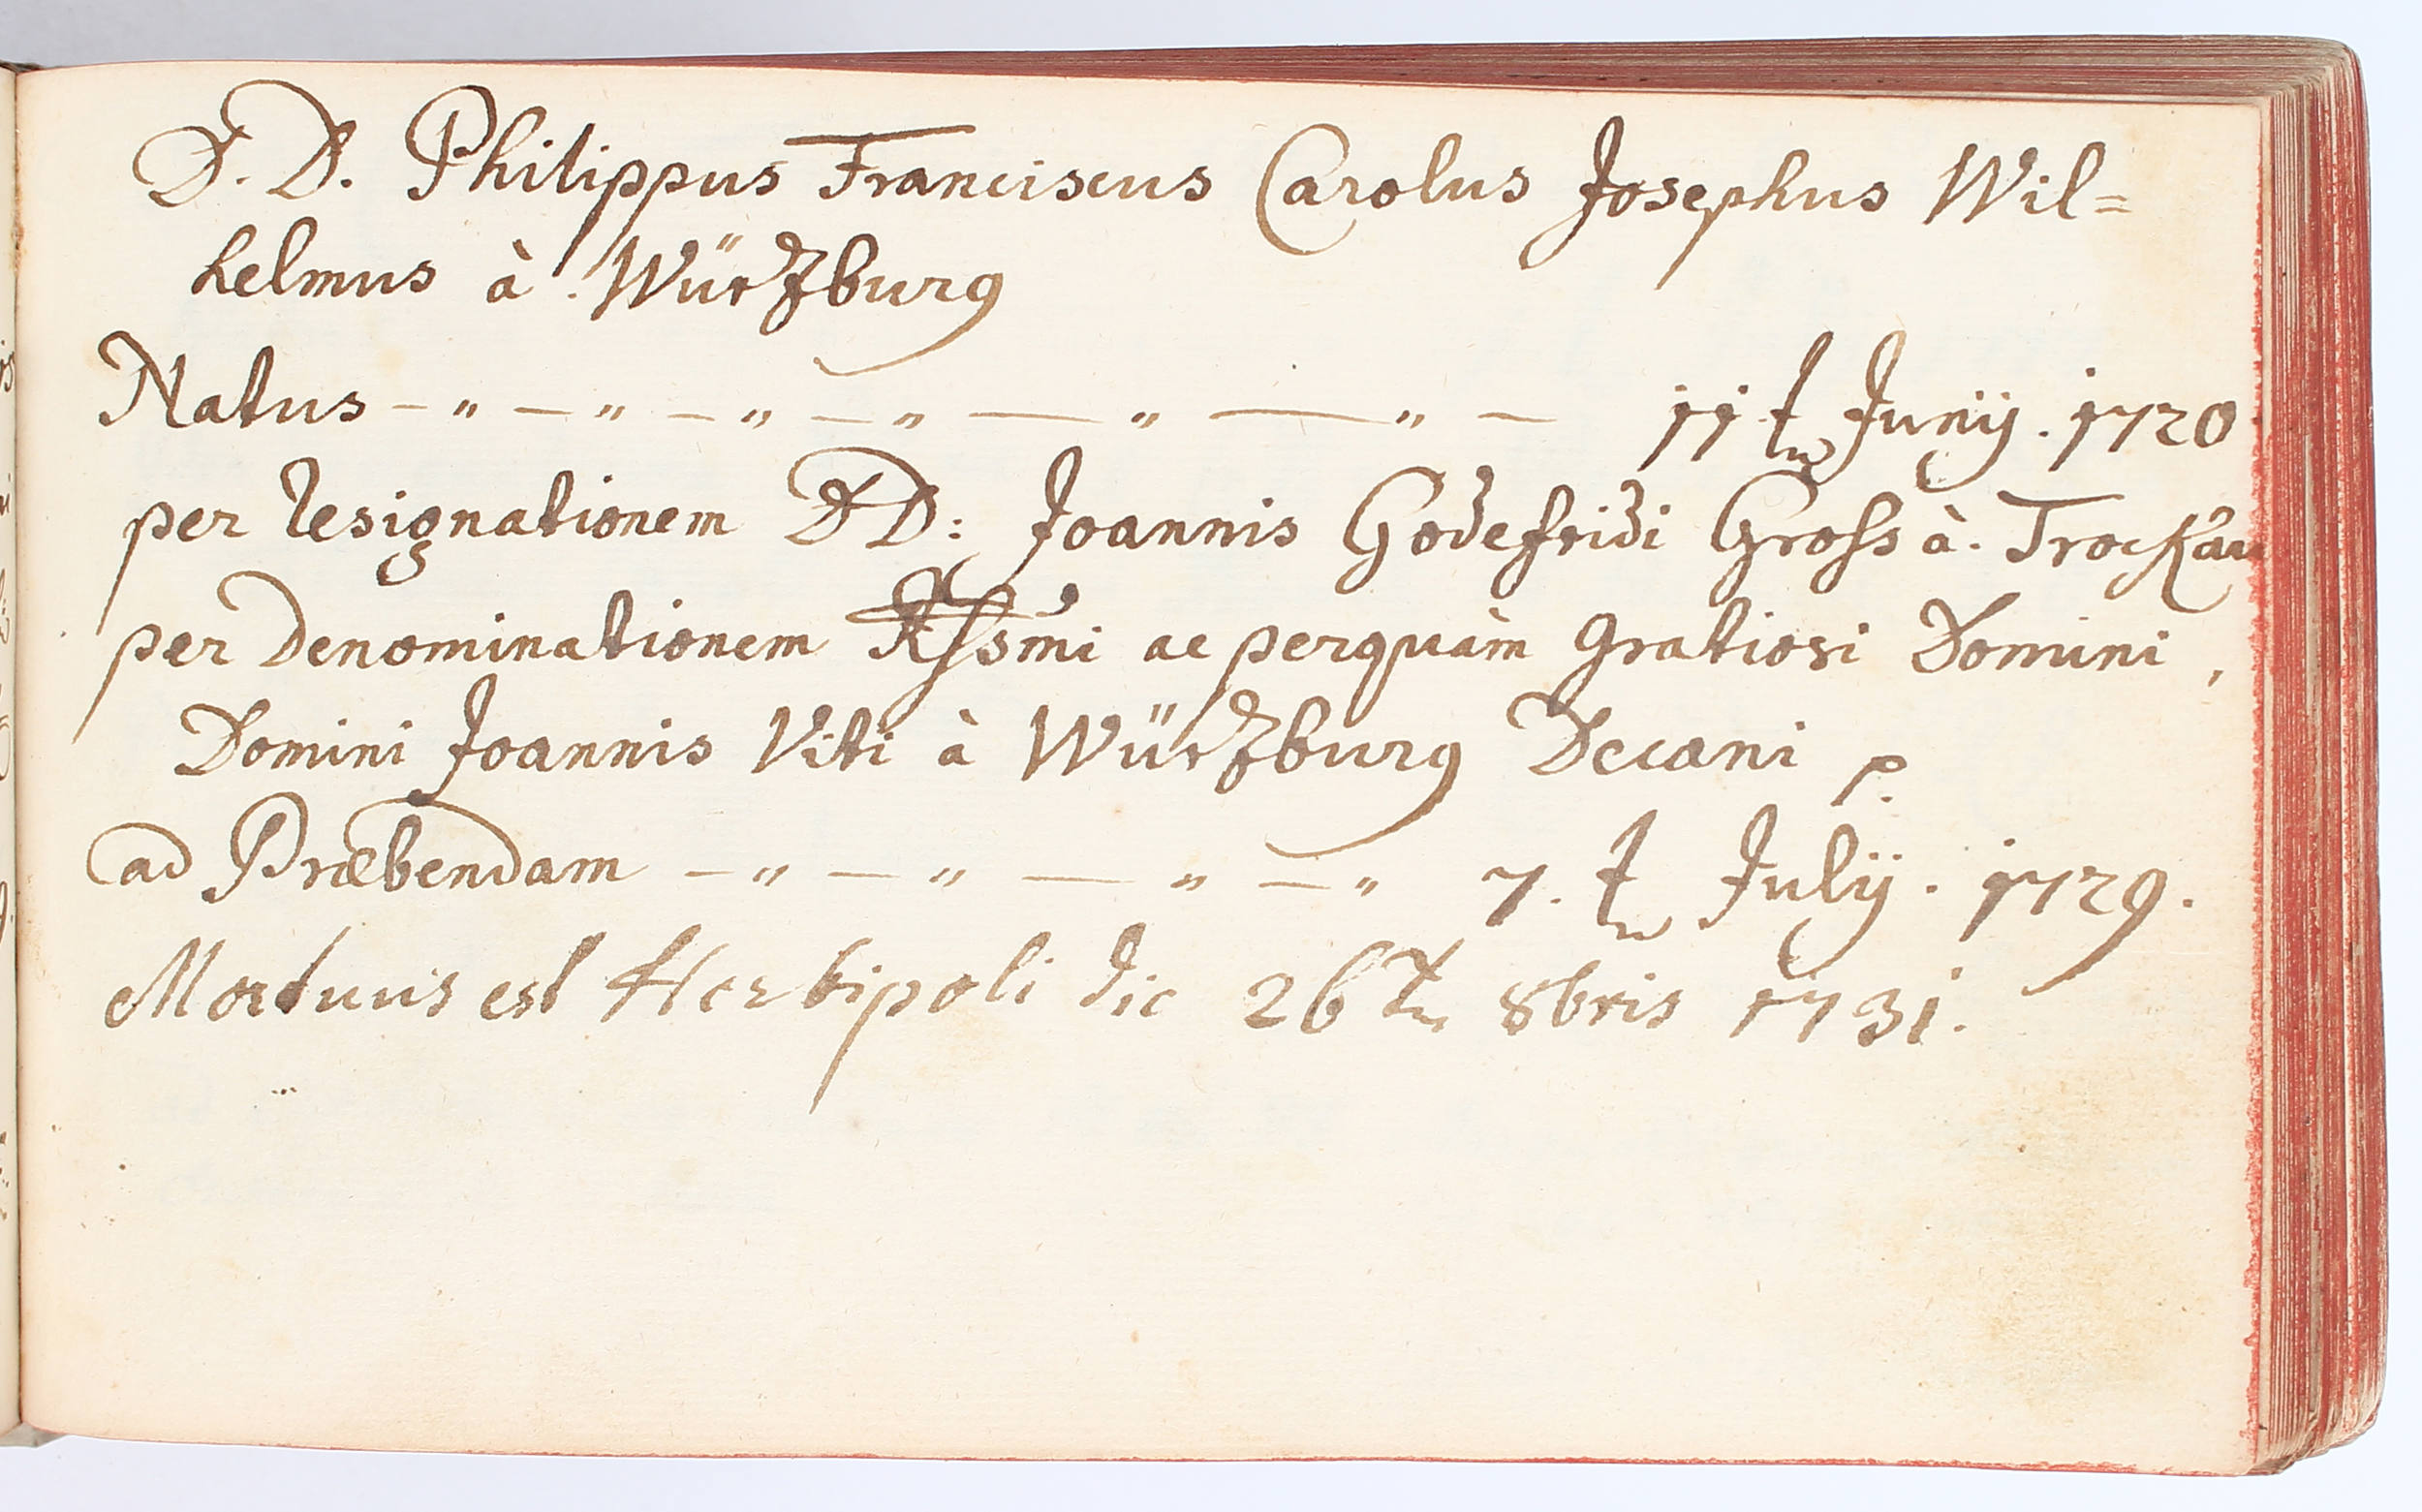 D. D. Philippus Franciscus Carolus Josephus Wil=
helmus à Würtzburg
Natus — " — " — " — " — " — " — 11 ten Junÿ. 1720
per resignationem DD: Joannis Godefridi Gross à. Trockau
per Denominationem Rssmi ac perquàm Gratiosi Domini,
Domini Joannis Viti à Würtzburg Decani p.
ad Præbendam — " — " — " — " 7. ten Julÿ. 1729.
Mortuus est Herbipoli die 26 ten 8bris 1731.